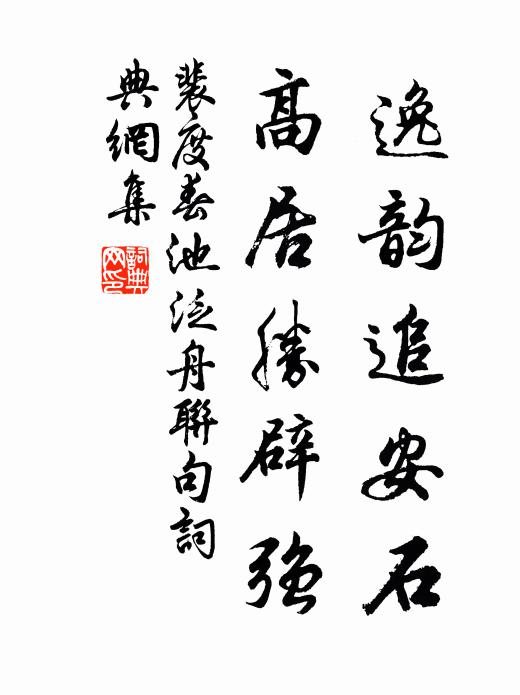 逸韵追安石
高居勝辟强
裴度春池泛舟聯句詞
典網集
詞典
网印